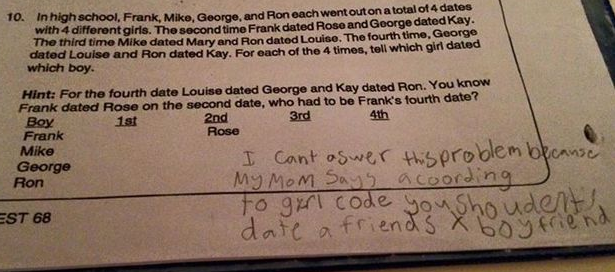 10. In high school, Frank, Mike, George, and Ron each went out on a total of 4 dates
with 4 different girls. The second time Frank dated Rose and George dated Kay.
The third time Mike dated Mary and Ron dated Louise. The fourth time, George
dated Louise and Ron dated Kay. For each of the 4 times, tell which girl dated
which boy.
Hint: For the fourth date Louise dated George and Kay dated Ron. You know
Frank dated Rose on the second date, who had to be Frank's fourth date?
Boy 1st 2nd 3rd 4th
Frank Rose
Mike
George
Ron
I cant aswer this problem because
My Mom Says acoording
to girl code you shoudent
date a friends X boyfriend
EST 68